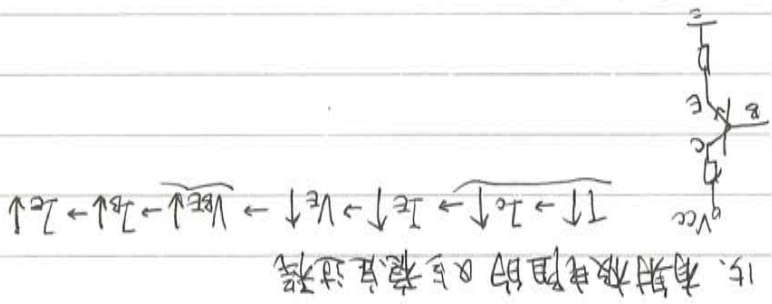 15、有射极电阻的Q点稳定过程
T↑ → Ic↑ → IE↑ → VE↑ → VBE↓ → IB↓ → Ic↓
Vcc
C
B
E